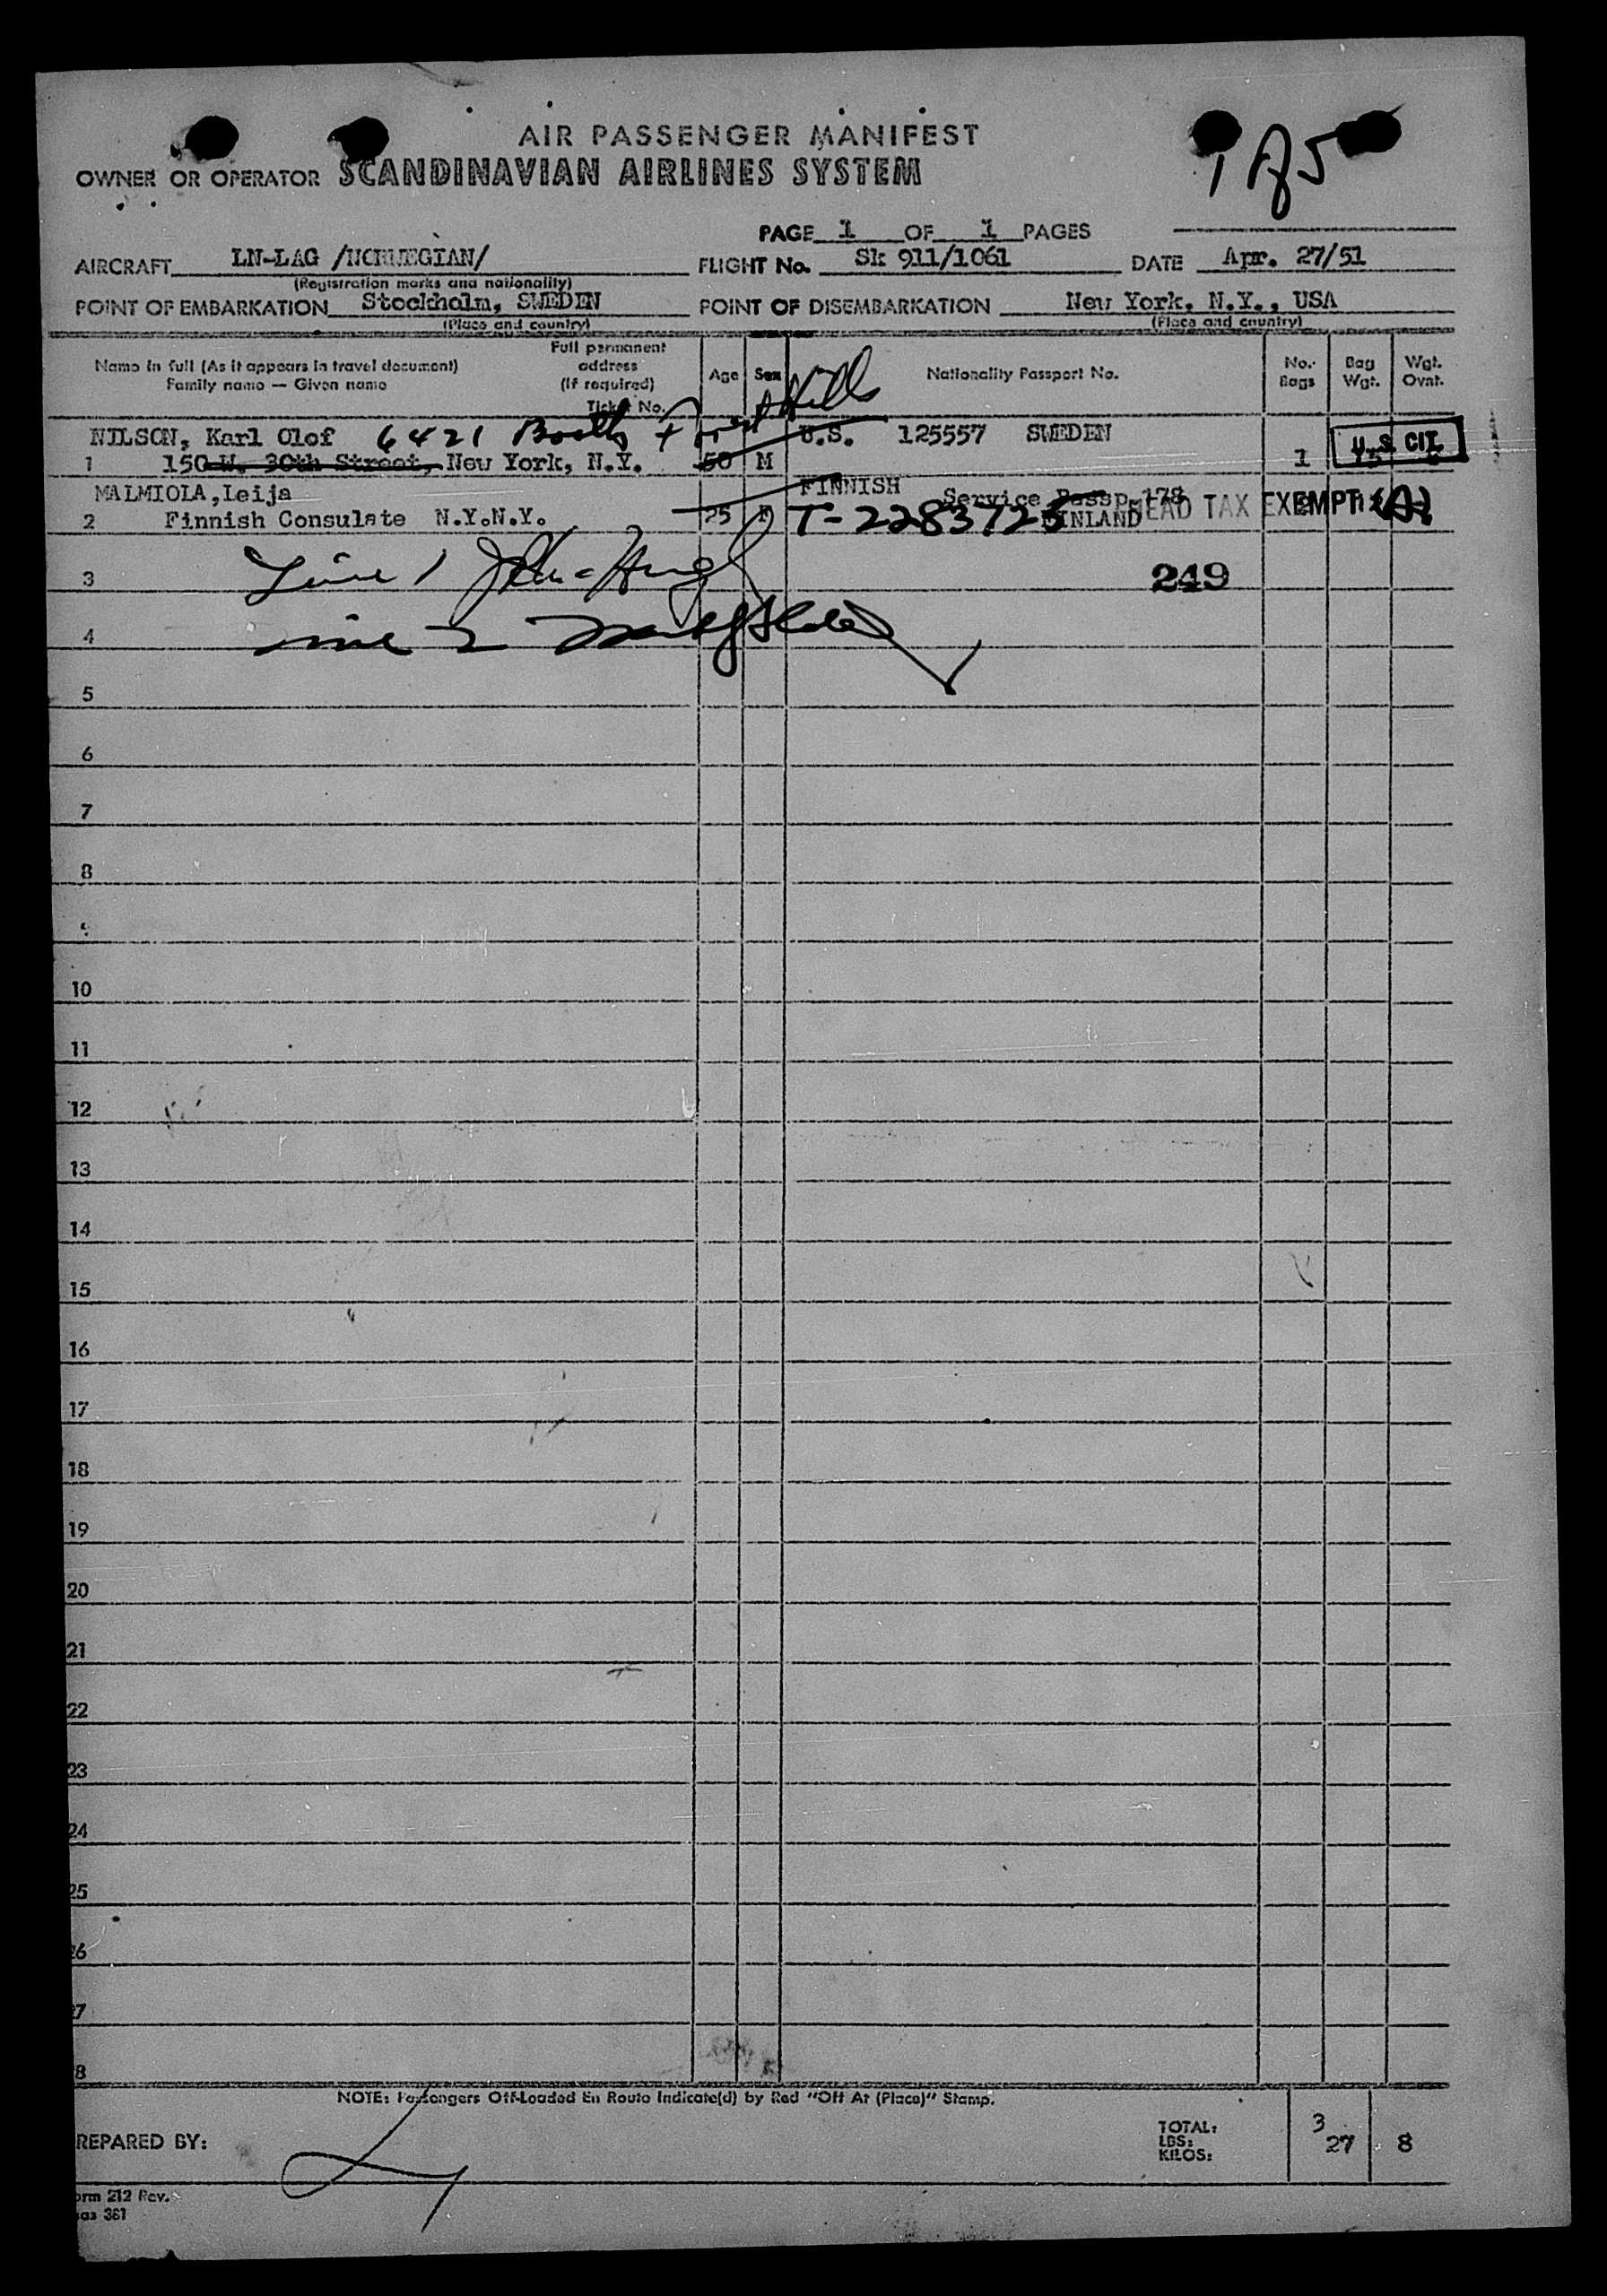 1 of 5
AIR PASSENGER MANIFEST
OWNER OR OPERATOR SCANDINAVIAN AIRLINES SYSTEM
PAGE 1 OF 1 PAGES
AIRCRAFT LN-LAG /NORWEGIAN/ FLIGHT No. Sk 911/1061 DATE Apr. 27/51
(Registration marks and nationality)
POINT OF EMBARKATION Stockholm, SWEDEN POINT OF DISEMBARKATION New York, N.Y., USA
(Place and country) (Place and country)
Name in full (As it appears in travel document) Full permanent address (If required) Age Sex Nationality Passport No. No. Bags Bag Wgt. Wgt. Ovnt.
Family name — Given name Ticket No.
NILSON, Karl Olof 6421 Booth Forest Hills U.S. 125557 SWEDEN U.S. CIT.
1 150 W. 30th Street, New York, N.Y. 50 M 1
MALMIOLA, Leija FINNISH Service Passp. 178
2 Finnish Consulate N.Y.N.Y. 25 F T-2283725 FINLAND HEAD TAX EXEMPT (A)
3 Line 1 249
4 Line 2
5
6
7
8
9
10
11
12
13
14
15
16
17
18
19
20
21
22
23
24
25
26
27
28
NOTE: Passengers Off-Loaded En Route Indicate(d) by Red "Off At (Place)" Stamp.
REPARED BY: TOTAL: 3
LBS: 27 8
KILOS:
orm 212 Rev.
sas 361